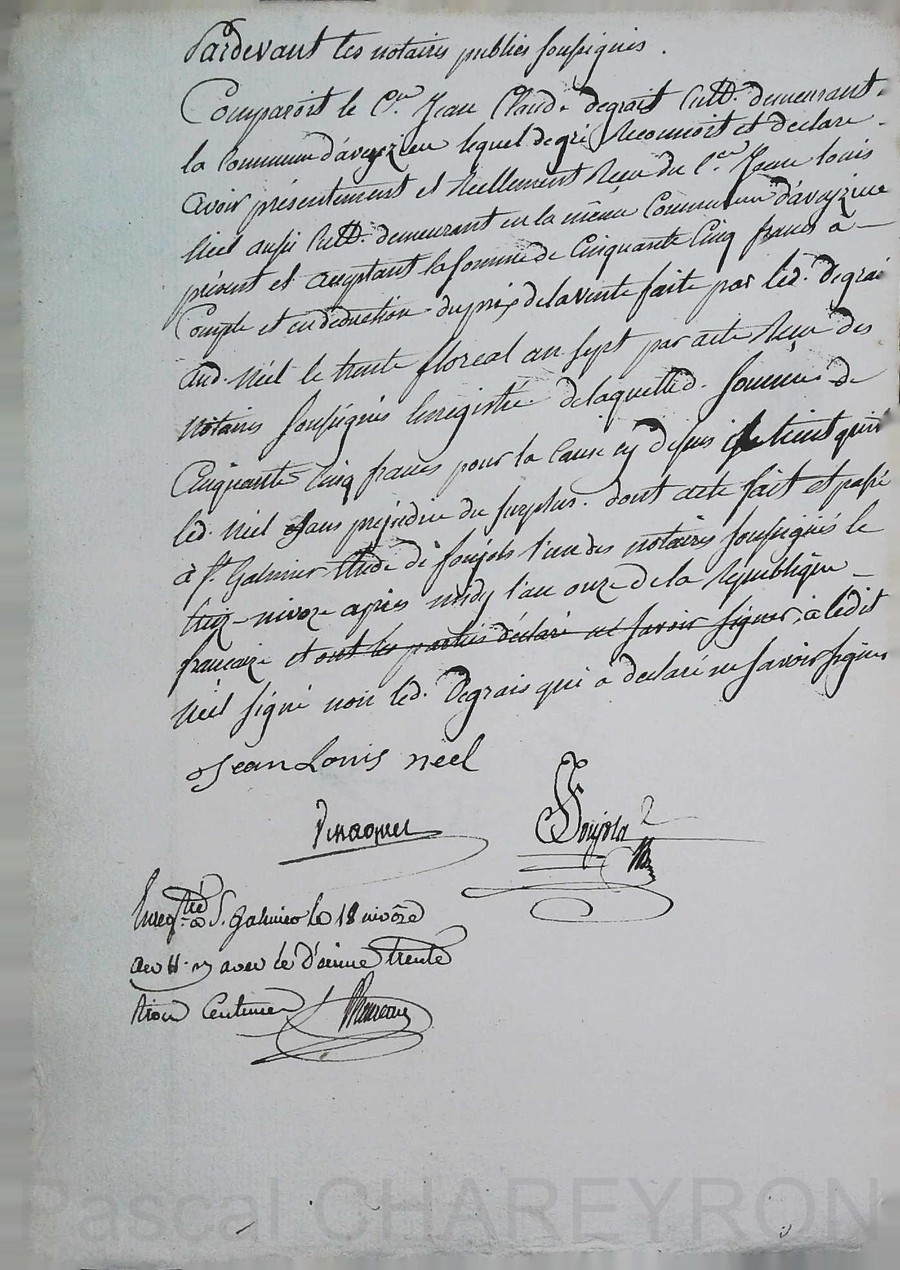 Pardevant les notaires publics soussignés .
Comparoit le C.en Jean Claude degrais Cult.r demeurant
la Commune d'aveyzieu lequel de gré Reconnoit et declare
avoir présentement et Reellement Reçu du C.en Jean louis
Néel aussi Cult.r demeurant en la même Commune d'aveyzieu
présent et acceptant la somme de Cinquante Cinq francs à
Compte et en déduction du prix de la vente faite par led. degrais
aud. Néel le trente floreal an sept par acte Reçu des
notaires soussignés Enregistré de laquelle d. somme de
Cinquante Cinq francs pour la Cause cy dessus il tient quitte
led. Néel sans prejudice du surplus. dont acte fait et passé
à S.t Galmier Etude de soujols l'un des notaires soussignés le
treize nivoze après midy l'an onze de la Republique
francaize et ont les parties déclaré ne savoir signer, à ledit
Néel signé non led. Degrais qui a declaré ne savoir signer
Jean Louis néel
Soujols
Enregtré à S. Galmier le 18 nivôse
an 11. avec le d'cime trente
trois Centimes
Pascal CHAREYRON